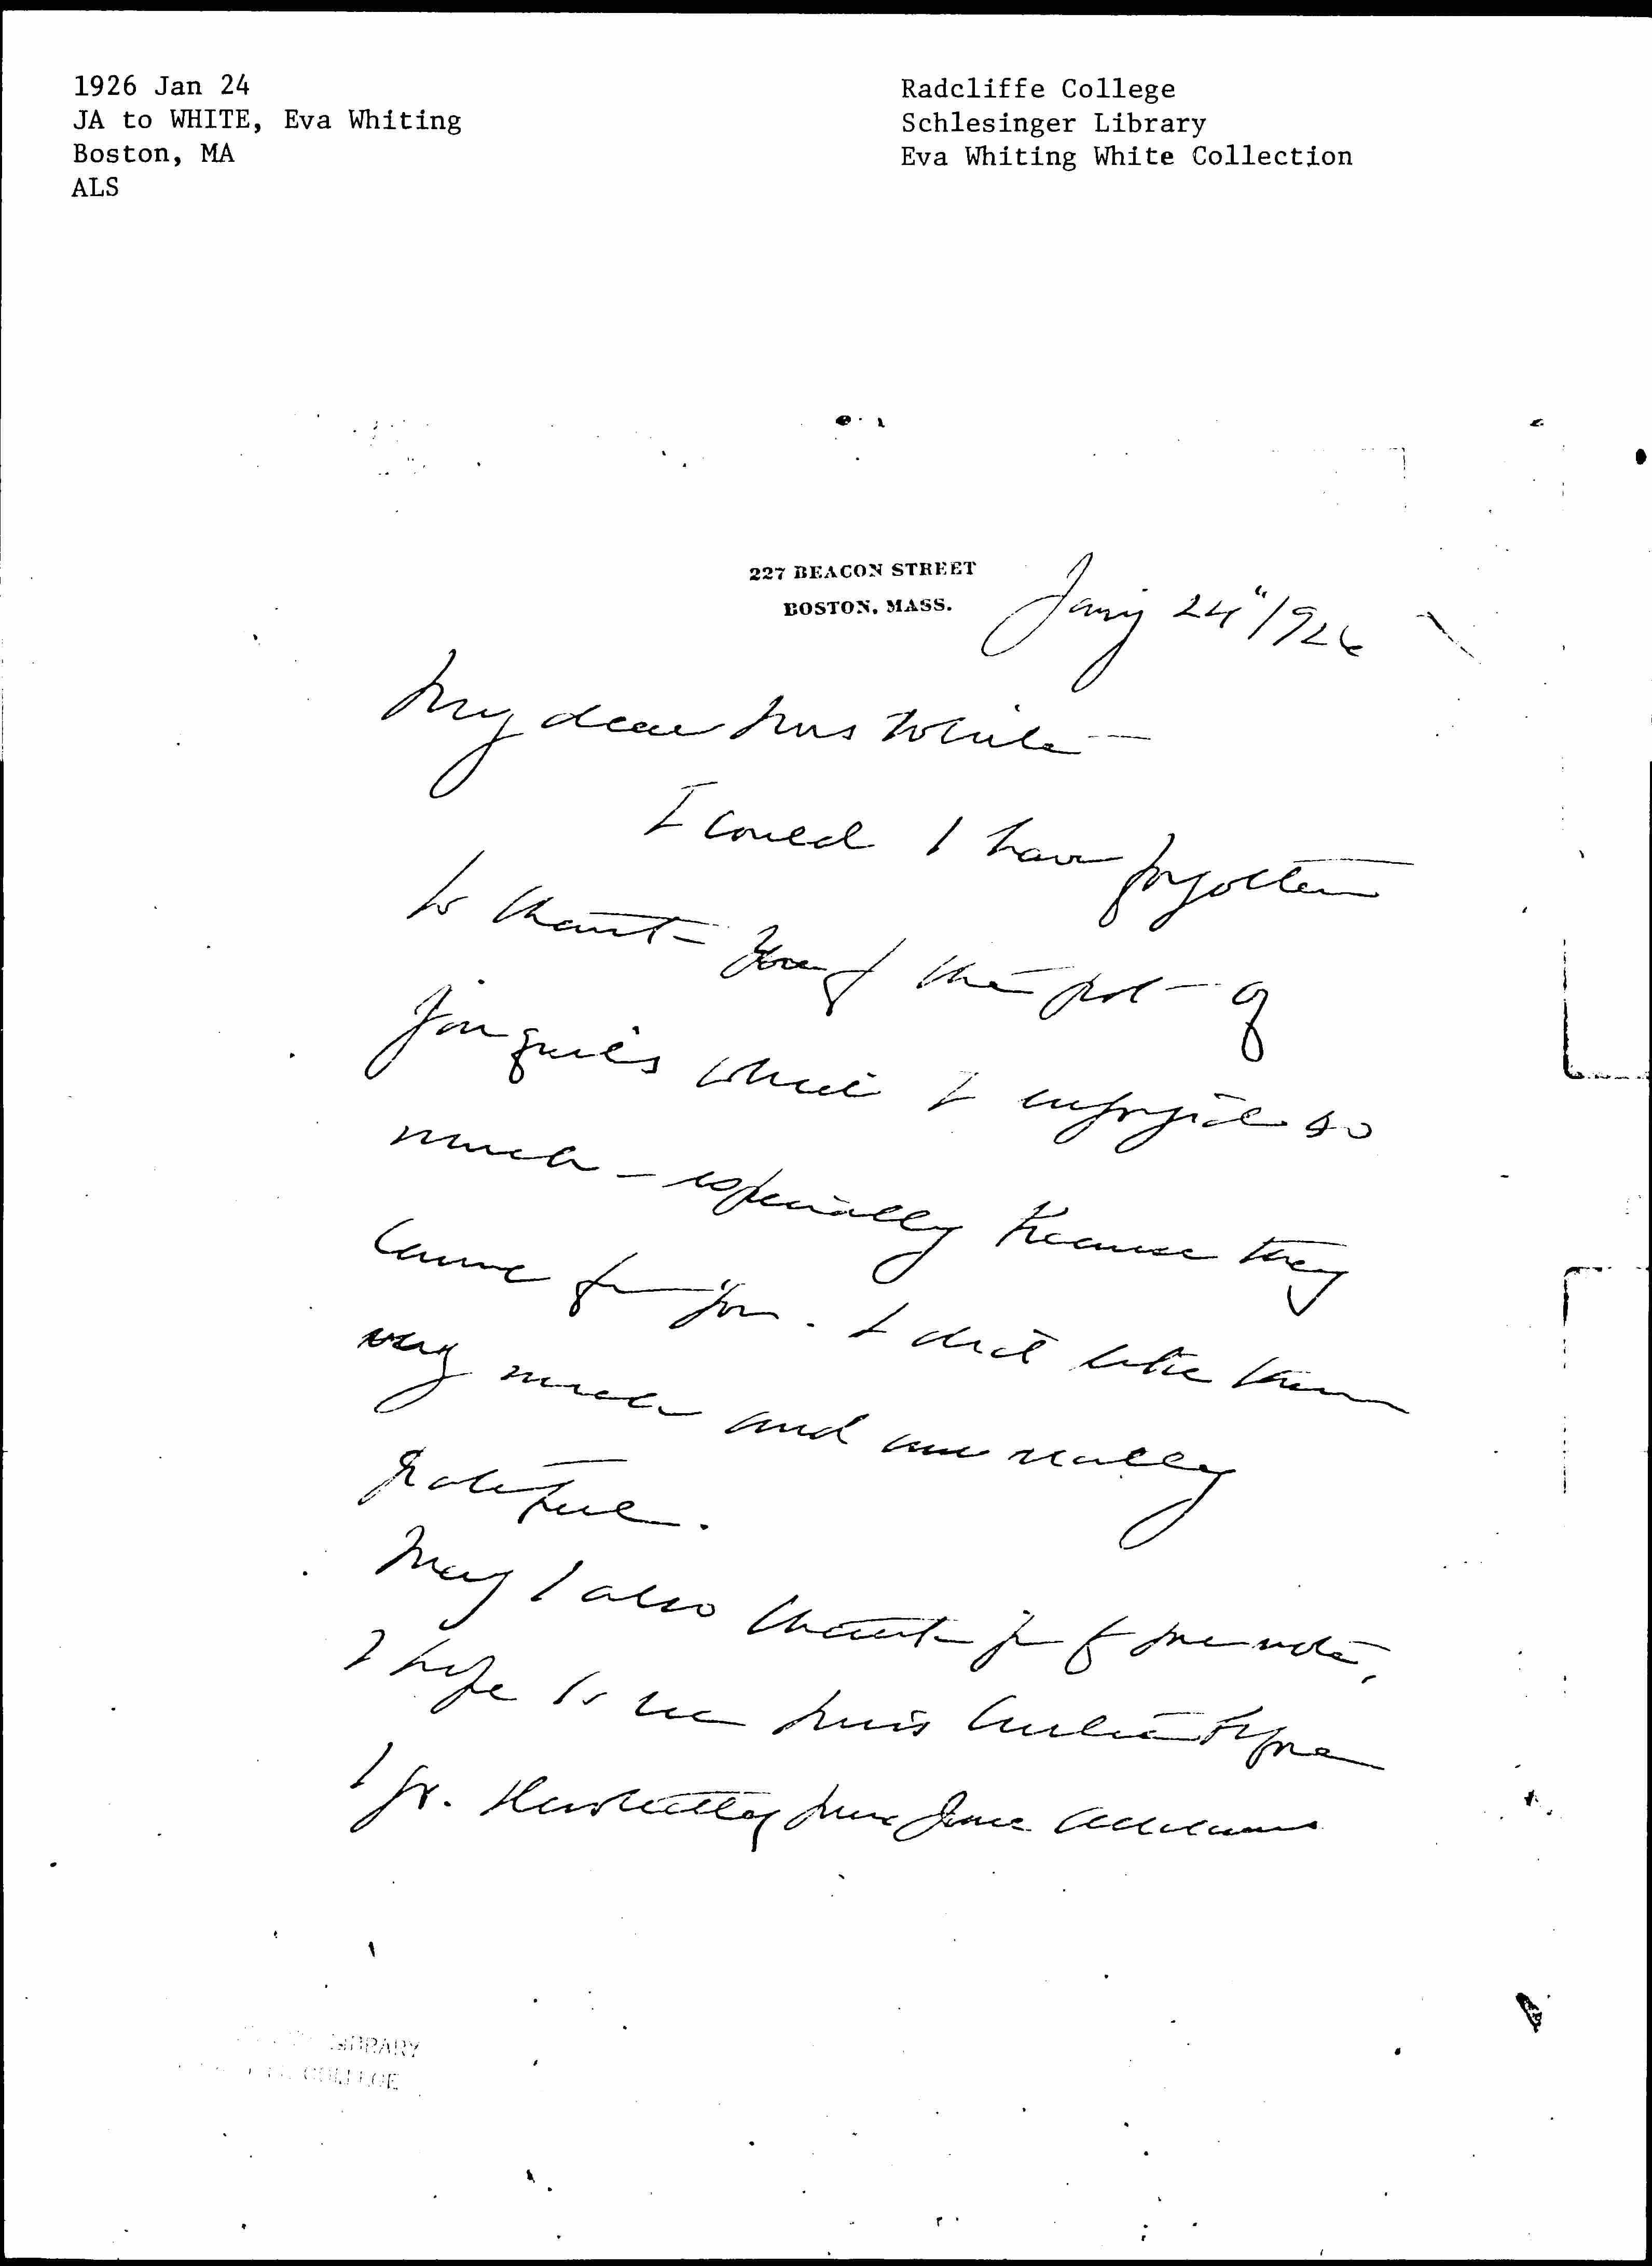 1926 Jan 24
JA to WHITE, Eva Whiting
Boston, MA
ALS
Radcliffe College
Schlesinger Library
Eva Whiting White Collection
227 BEACON STREET
BOSTON, MASS.
Jany 24" 1926
My dear Mrs White —
I could I have forgotten
to thank you for the pot of
jonquils which I enjoyed so
much — especially because they
came from you. I did like them
very much and am really
grateful.
May I also thank you for the note,
I hope to see Miss before
I go. Jane Addams
LIBRARY
COLLEGE